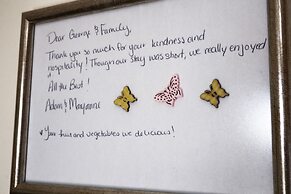 Dear George & Family,
Thank you so much for your kindness and
hospitality! Though our stay was short, we really enjoyed
it
All the Best!
Adam & Maryanne
* Your fruit and vegetables we delicious!